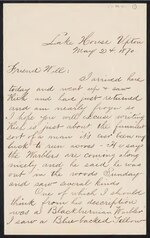 Lake House Upton
May 24 1890
Friend Will:
I arrived here
today and went up & saw
Rich and has just returned
and am nearly froze so
I hope you will excuse writing
this is just about the
sort of a
luck to run across - He says
the Warblers are coming along
nicely and he said he was
out in the woods Sunday
and saw several kinds
One of which I should
think from his description
was a Blackburnian Warbler
I saw a Blue backed Yellow